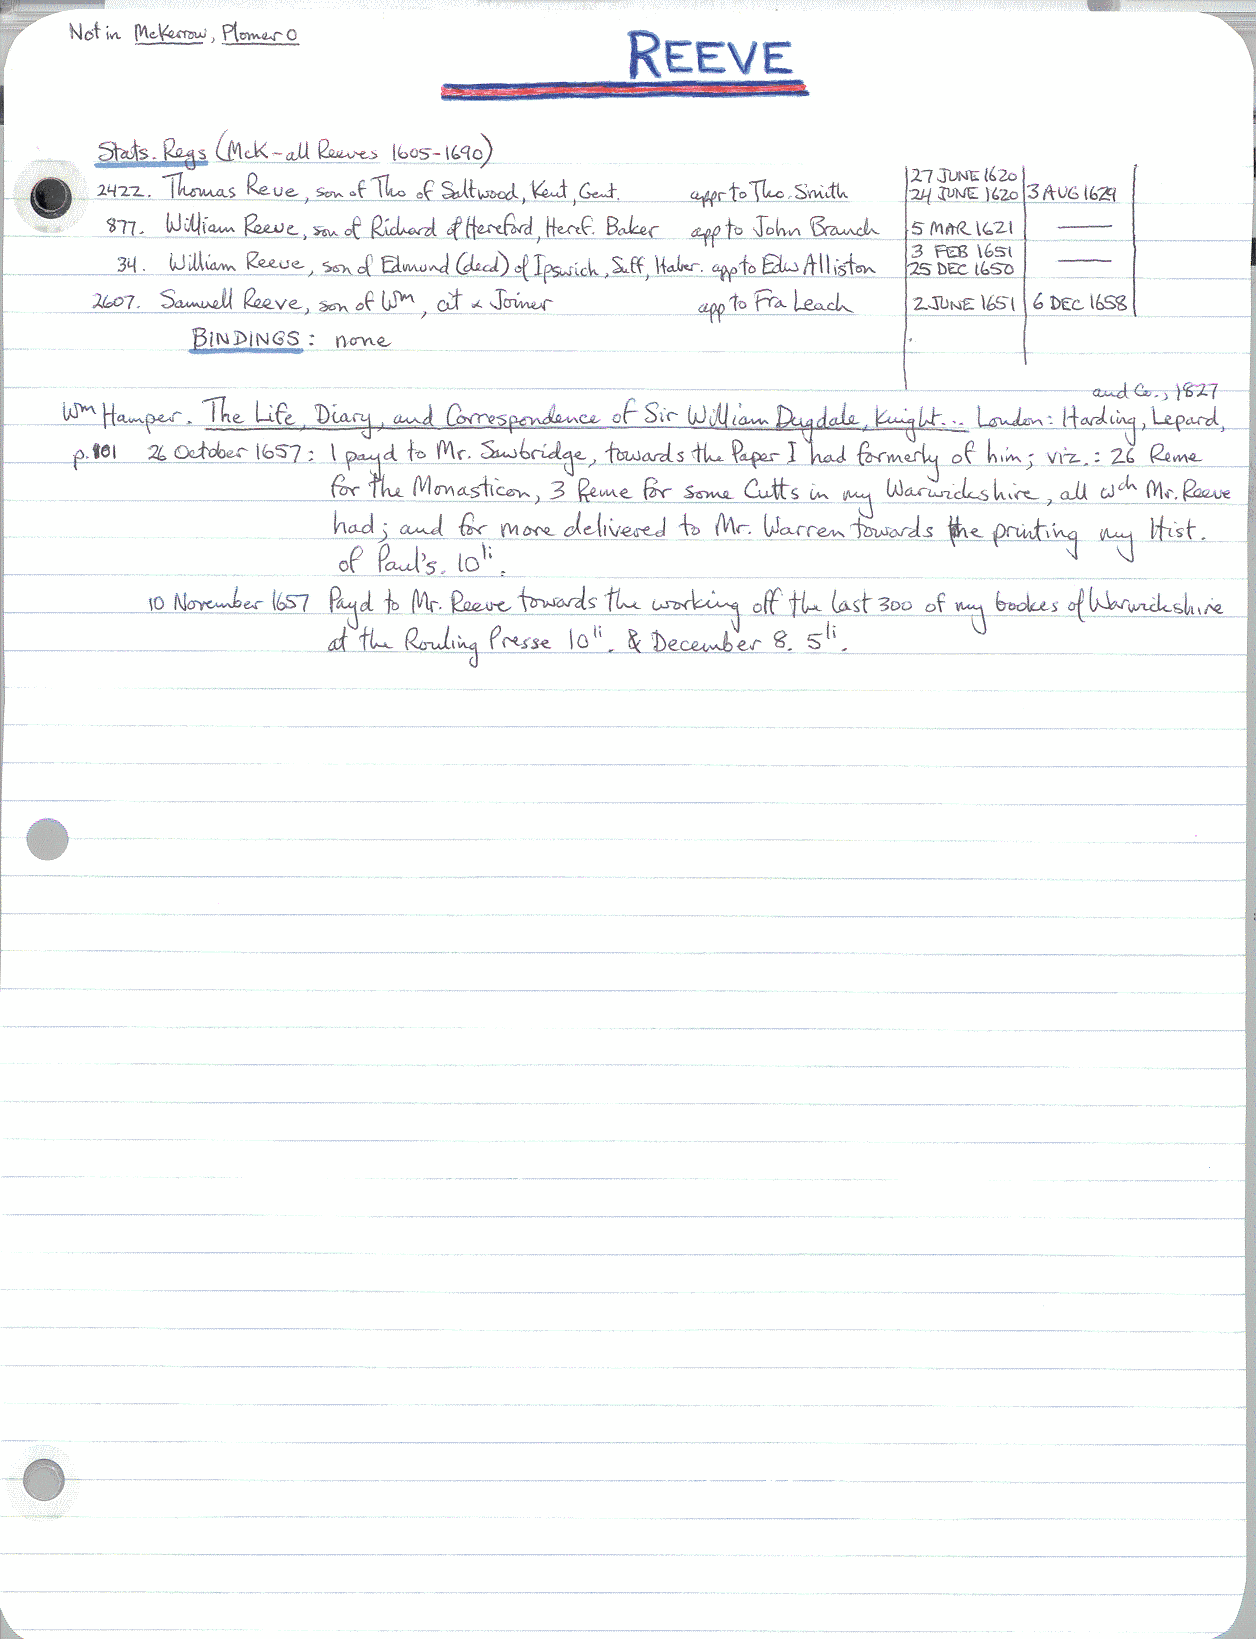 Not in McKerrow, Plomer O
REEVE
Stats. Regs (McK - all Reeves 1605-1690)
27 JUNE 1620
2422. Thomas Reve, son of Tho of Saltwood, Kent, Gent. appr to Tho. Smith 24 JUNE 1620 3 AUG 1629
877. William Reeve, son of Richard of Hereford, Heref. Baker app to John Branch 5 MAR 1621 —
3 FEB 1651
34. William Reeve, son of Edmund (decd) of Ipswich, Suff, Haber. app to Edw Alliston 25 DEC 1650 —
2607. Samuell Reeve, son of Wm, cit & Joiner app to Fra Leach 2 JUNE 1651 6 DEC 1658
BINDINGS: none
and Co., 1827
Wm Hamper. The Life, Diary, and Correspondence of Sir William Dugdale, Knight... London: Harding, Lepard,
p. 101 26 October 1657: I payd to Mr. Sawbridge, towards the Paper I had formerly of him; viz.: 26 Reme
for the Monasticon, 3 Reme for some Cutts in my Warwickshire, all wch Mr. Reeve
had; and for more delivered to Mr. Warren towards the printing my Hist.
of Paul's. 10li.
10 November 1657 Payd to Mr. Reeve towards the working off the last 300 of my bookes of Warwickshire
at the Rouling Presse 10li. & December 8. 5li.